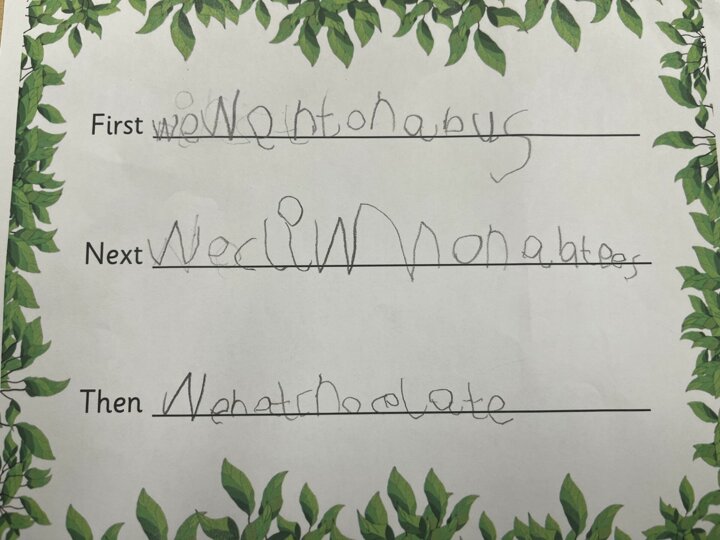 First weWentonabus
Next WecliWmonabtees
Then Wehatchocolate